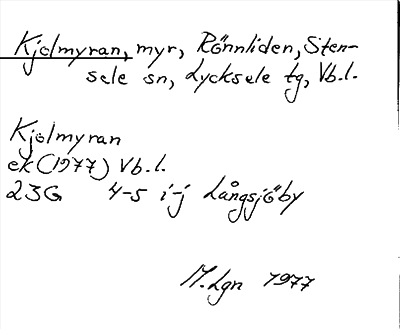 Kjolmyran, myr, Rönnliden, Sten-
sele sn, Lycksele tg, Vb.l.
Kjolmyran
ek (1977) Vb.l.
23G 4-5 i-j Långsjöby
M.Lgn 1977